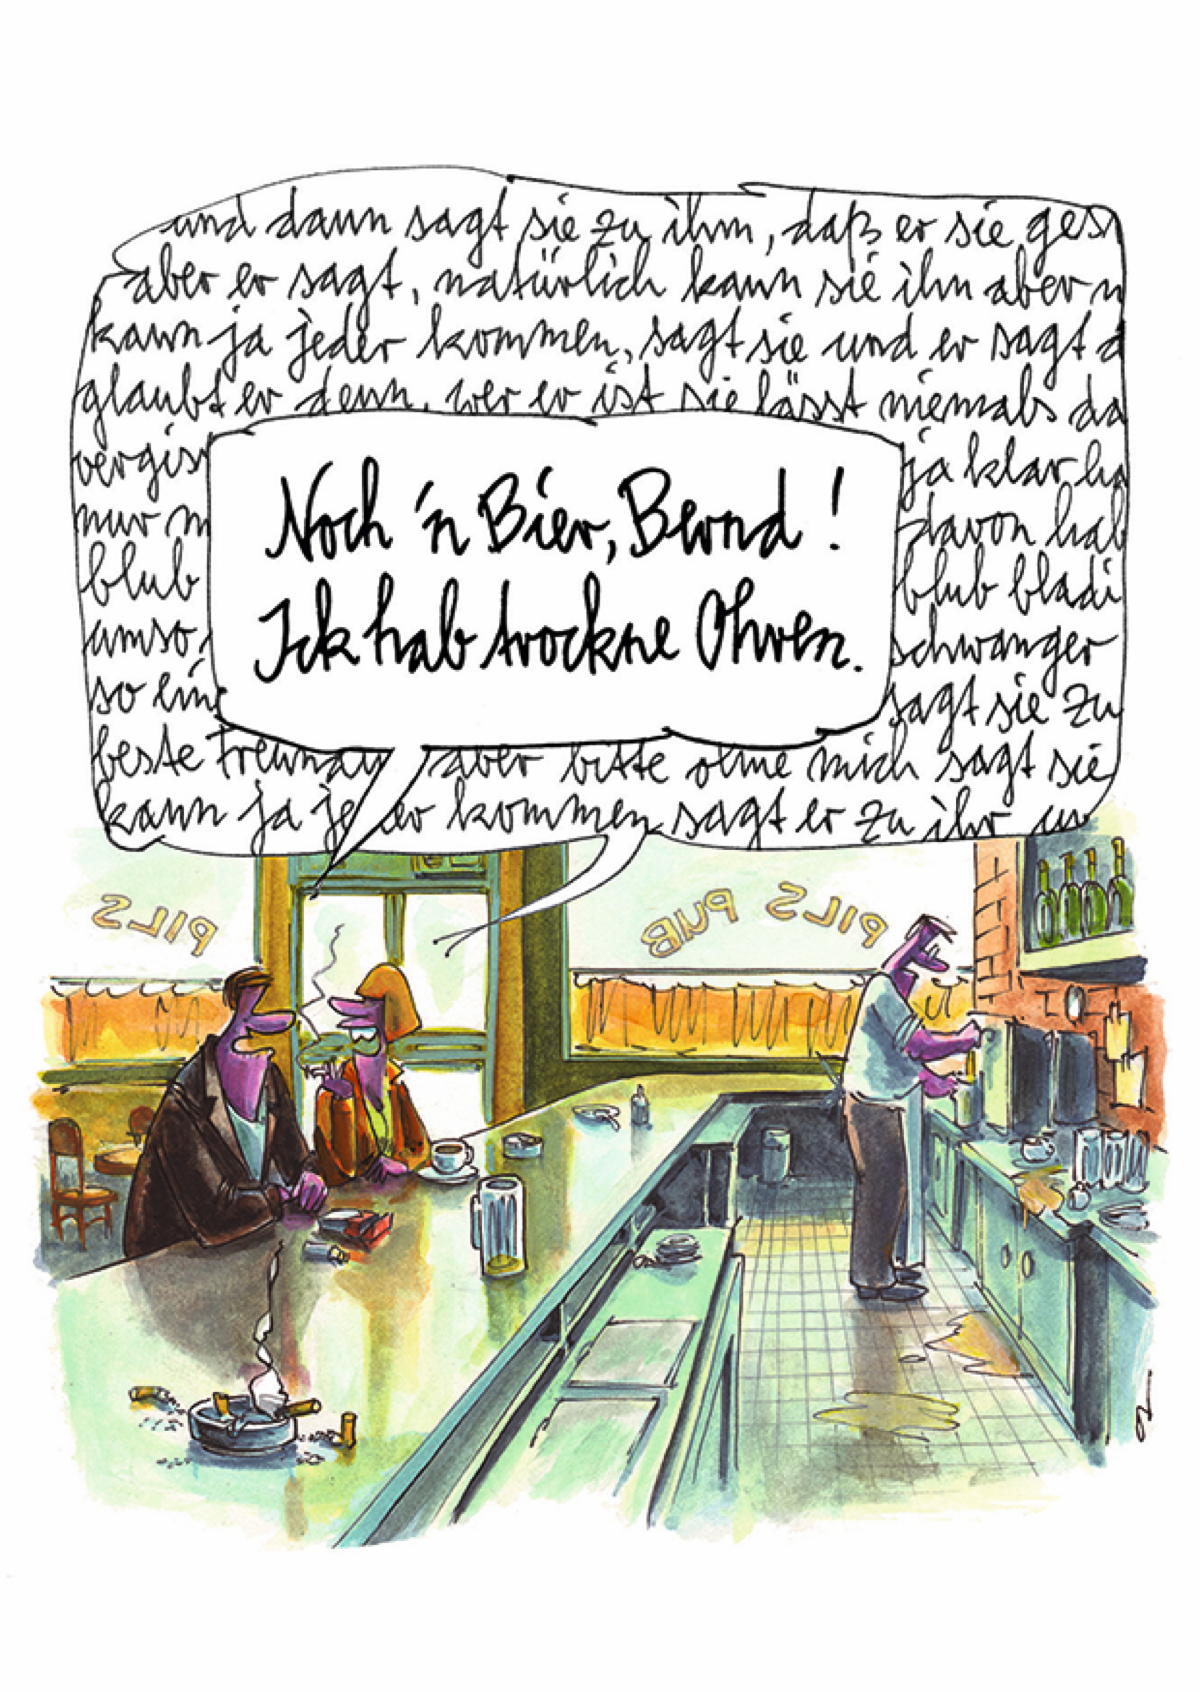 und dann sagt sie zu ihm, daß er sie ges
aber er sagt, natürlich kann sie ihn aber n
kann ja jeder kommen, sagt sie und er sagt d
glaubt er denn, wer er ist sie lässt niemals da
vergis ja klar ha
nur m davon hab
blub blub bladi
umso schwanger
so ein sagt sie zu
beste aber bitte ohne mich sagt sie
kann ja jeder kommen sagt er zu ihr un
Noch 'n Bier, Bernd!
Ick hab trockne Ohren.
PILS
PILS PUB